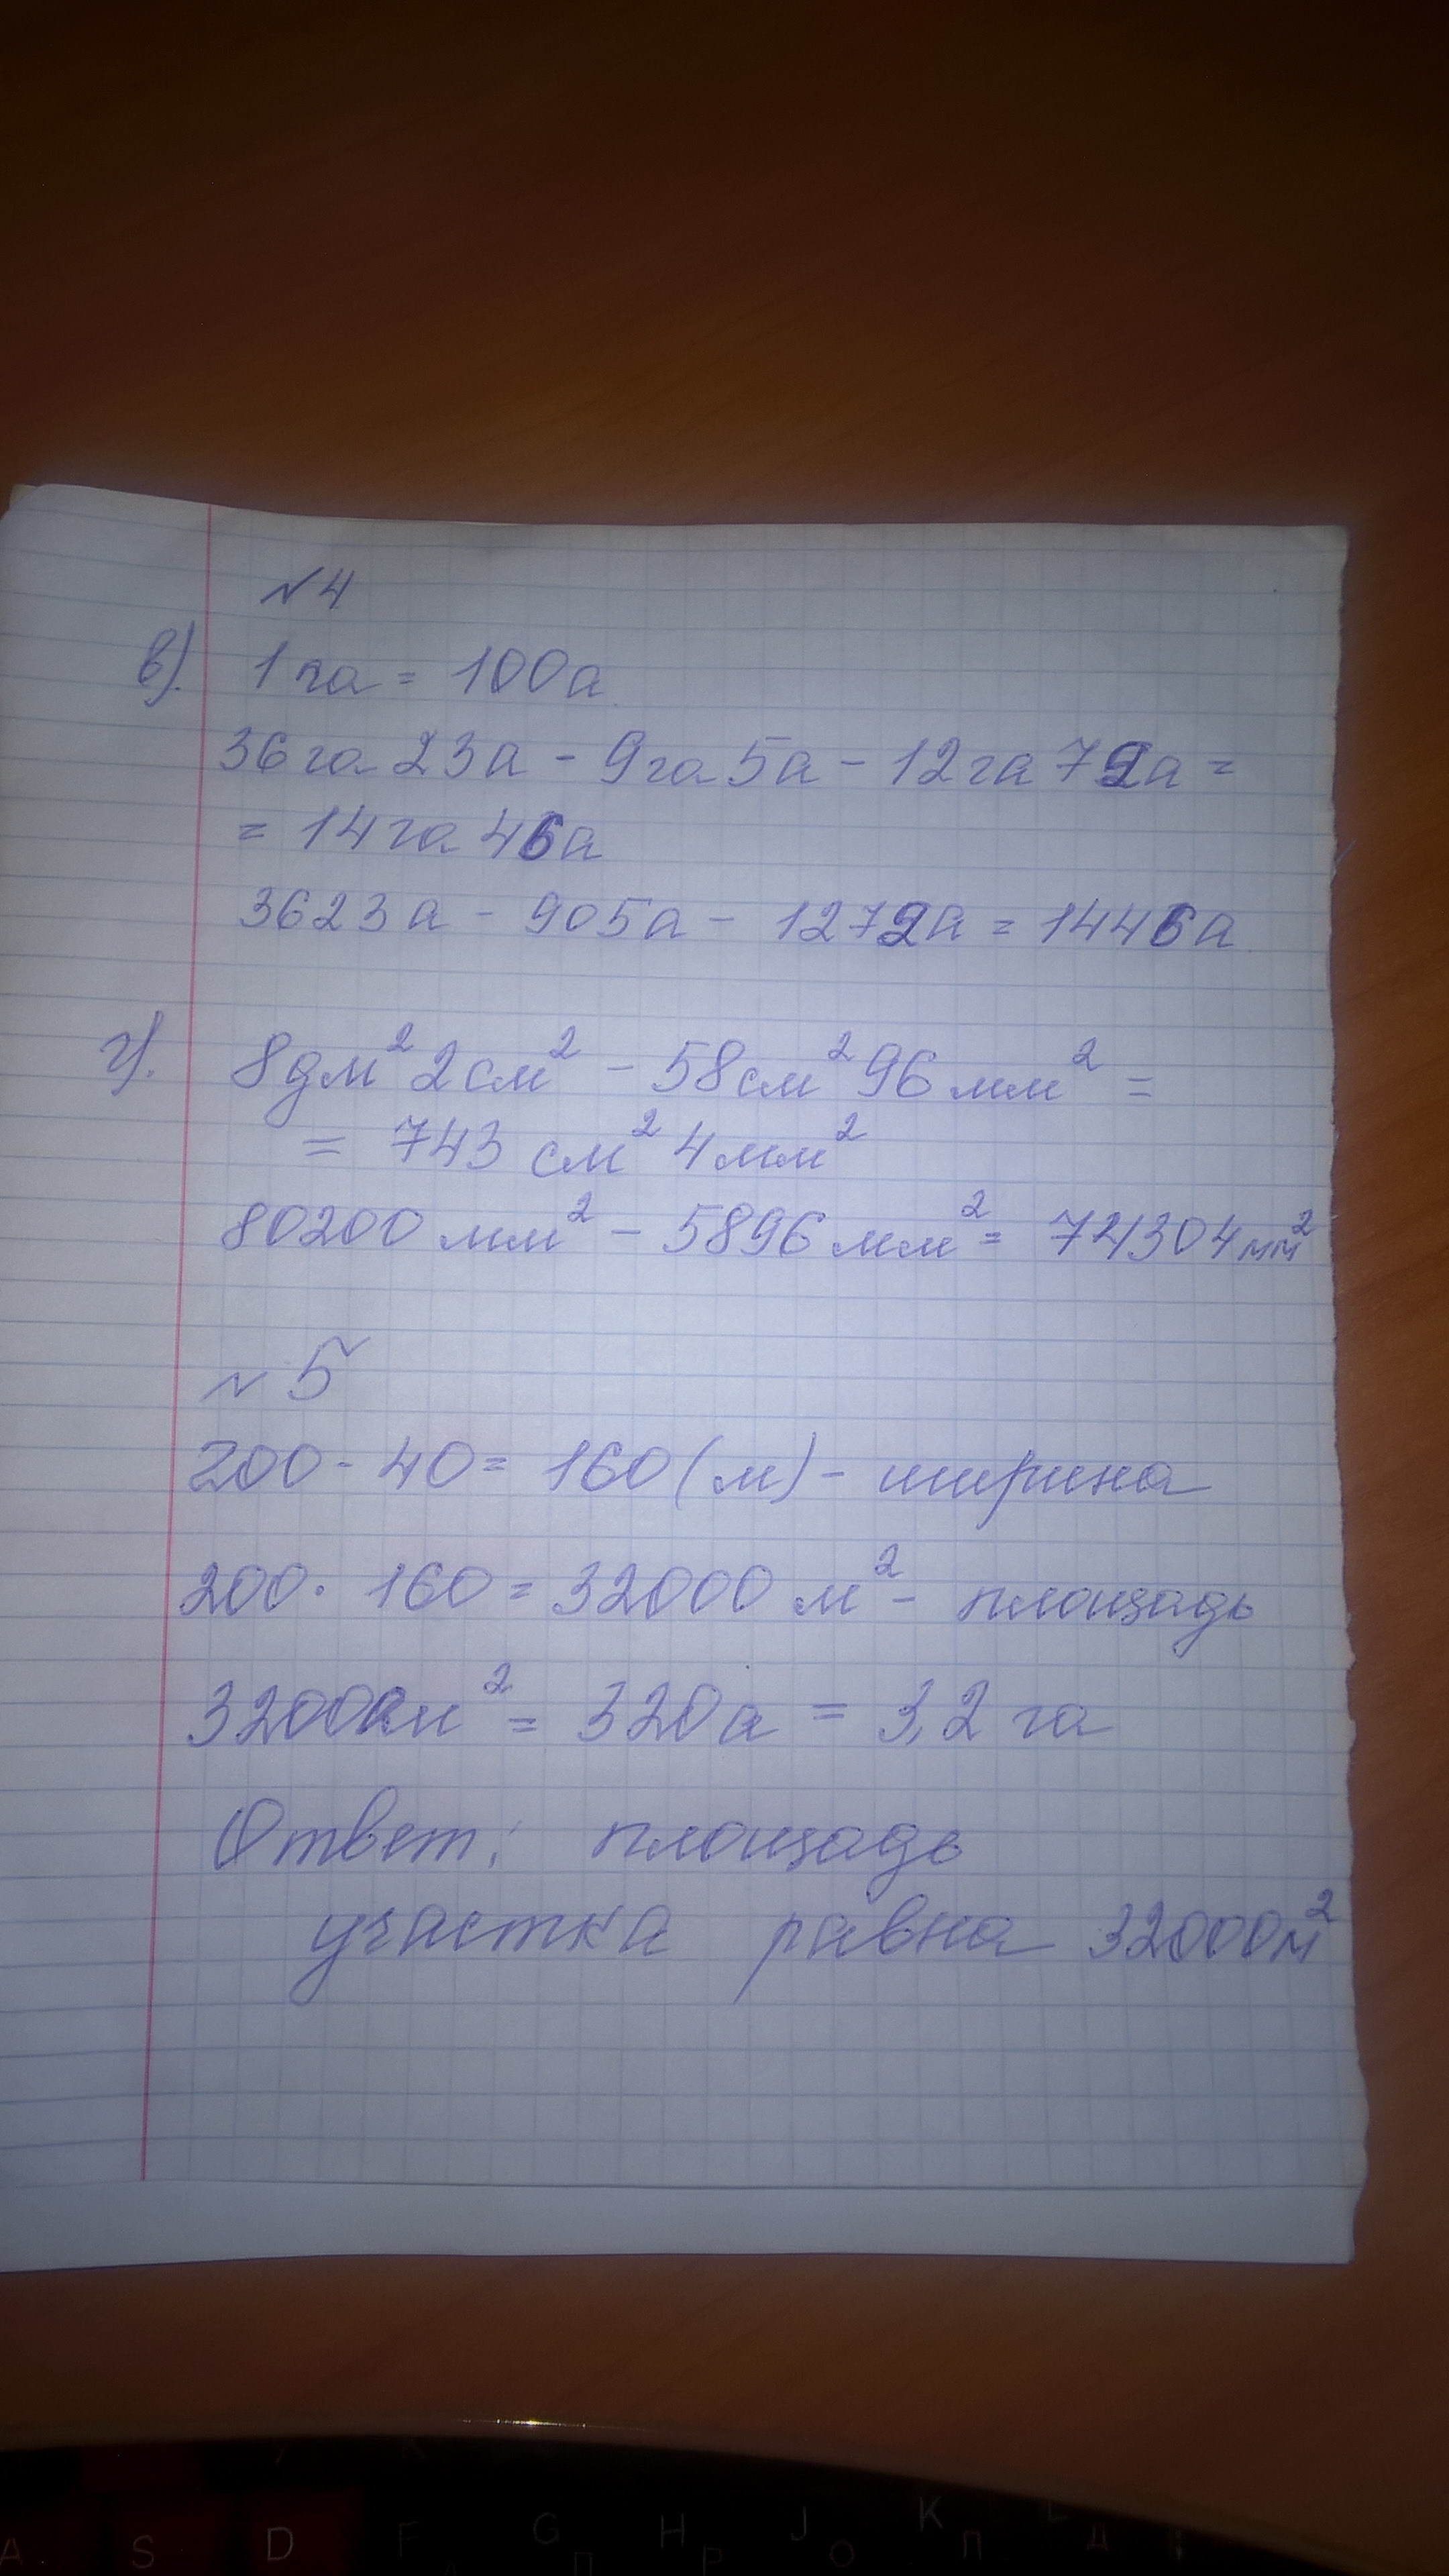 №4
в). 1 га = 100а
36га 23а - 9га 5а - 12га 72а =
= 14га 46а
3623а - 905а - 1272а = 1446а
г). 8дм² 2см² - 58см² 96мм² =
= 743 см² 4мм²
80200 мм² - 5896 мм² = 74304мм²
№5
200 - 40 = 160 (м) - ширина
200 · 160 = 32000 м² - площадь
32000м² = 320а = 3,2 га
Ответ: площадь
участка равна 32000м²
A S D F G H J K L
А П Р О Л Д